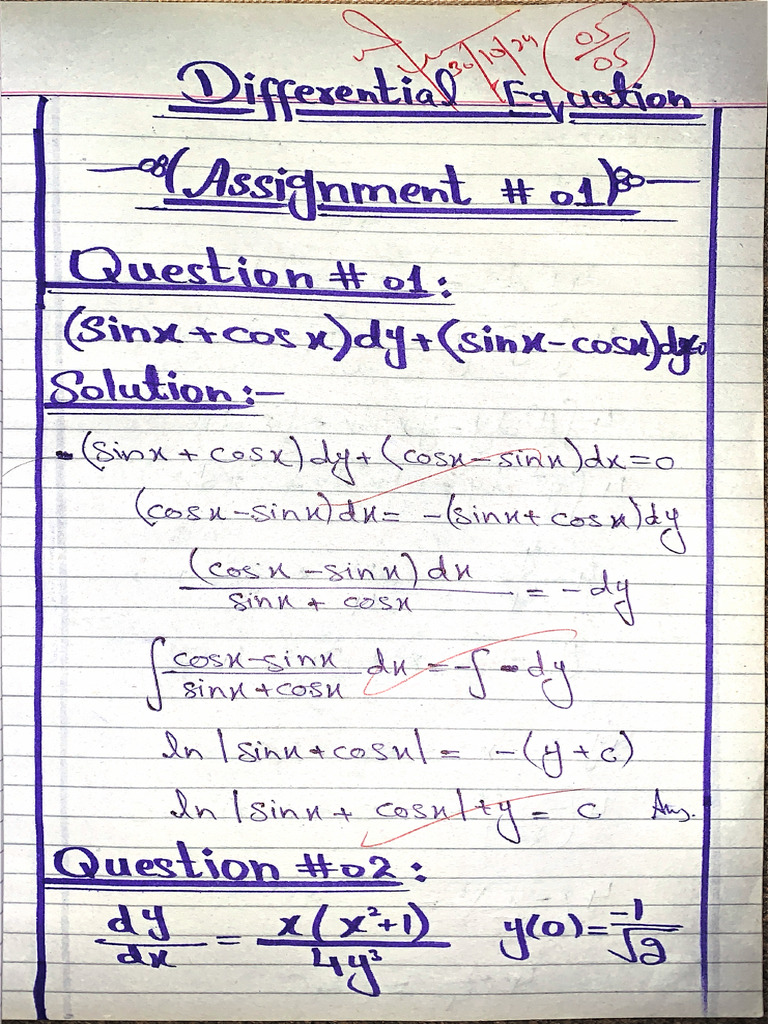 30/10/24
05/05
Differential Equation
(Assignment # 01)
Question # 01:
(Sinx + cosx)dy + (sinx - cosx)dx=0
Solution :-
(sinx + cosx)dy + (cosx - sinx)dx = 0
(cosx - sinx)dx = -(sinx + cosx)dy
(cosx - sinx)dx / sinx + cosx = -dy
∫ cosx - sinx / sinx + cosx dx = -∫ dy
ln |sinx + cosx| = -(y + c)
ln |sinx + cosx| + y = c Ans.
Question #02:
dy/dx = x(x²+1) / 4y³ y(0) = -1/√2